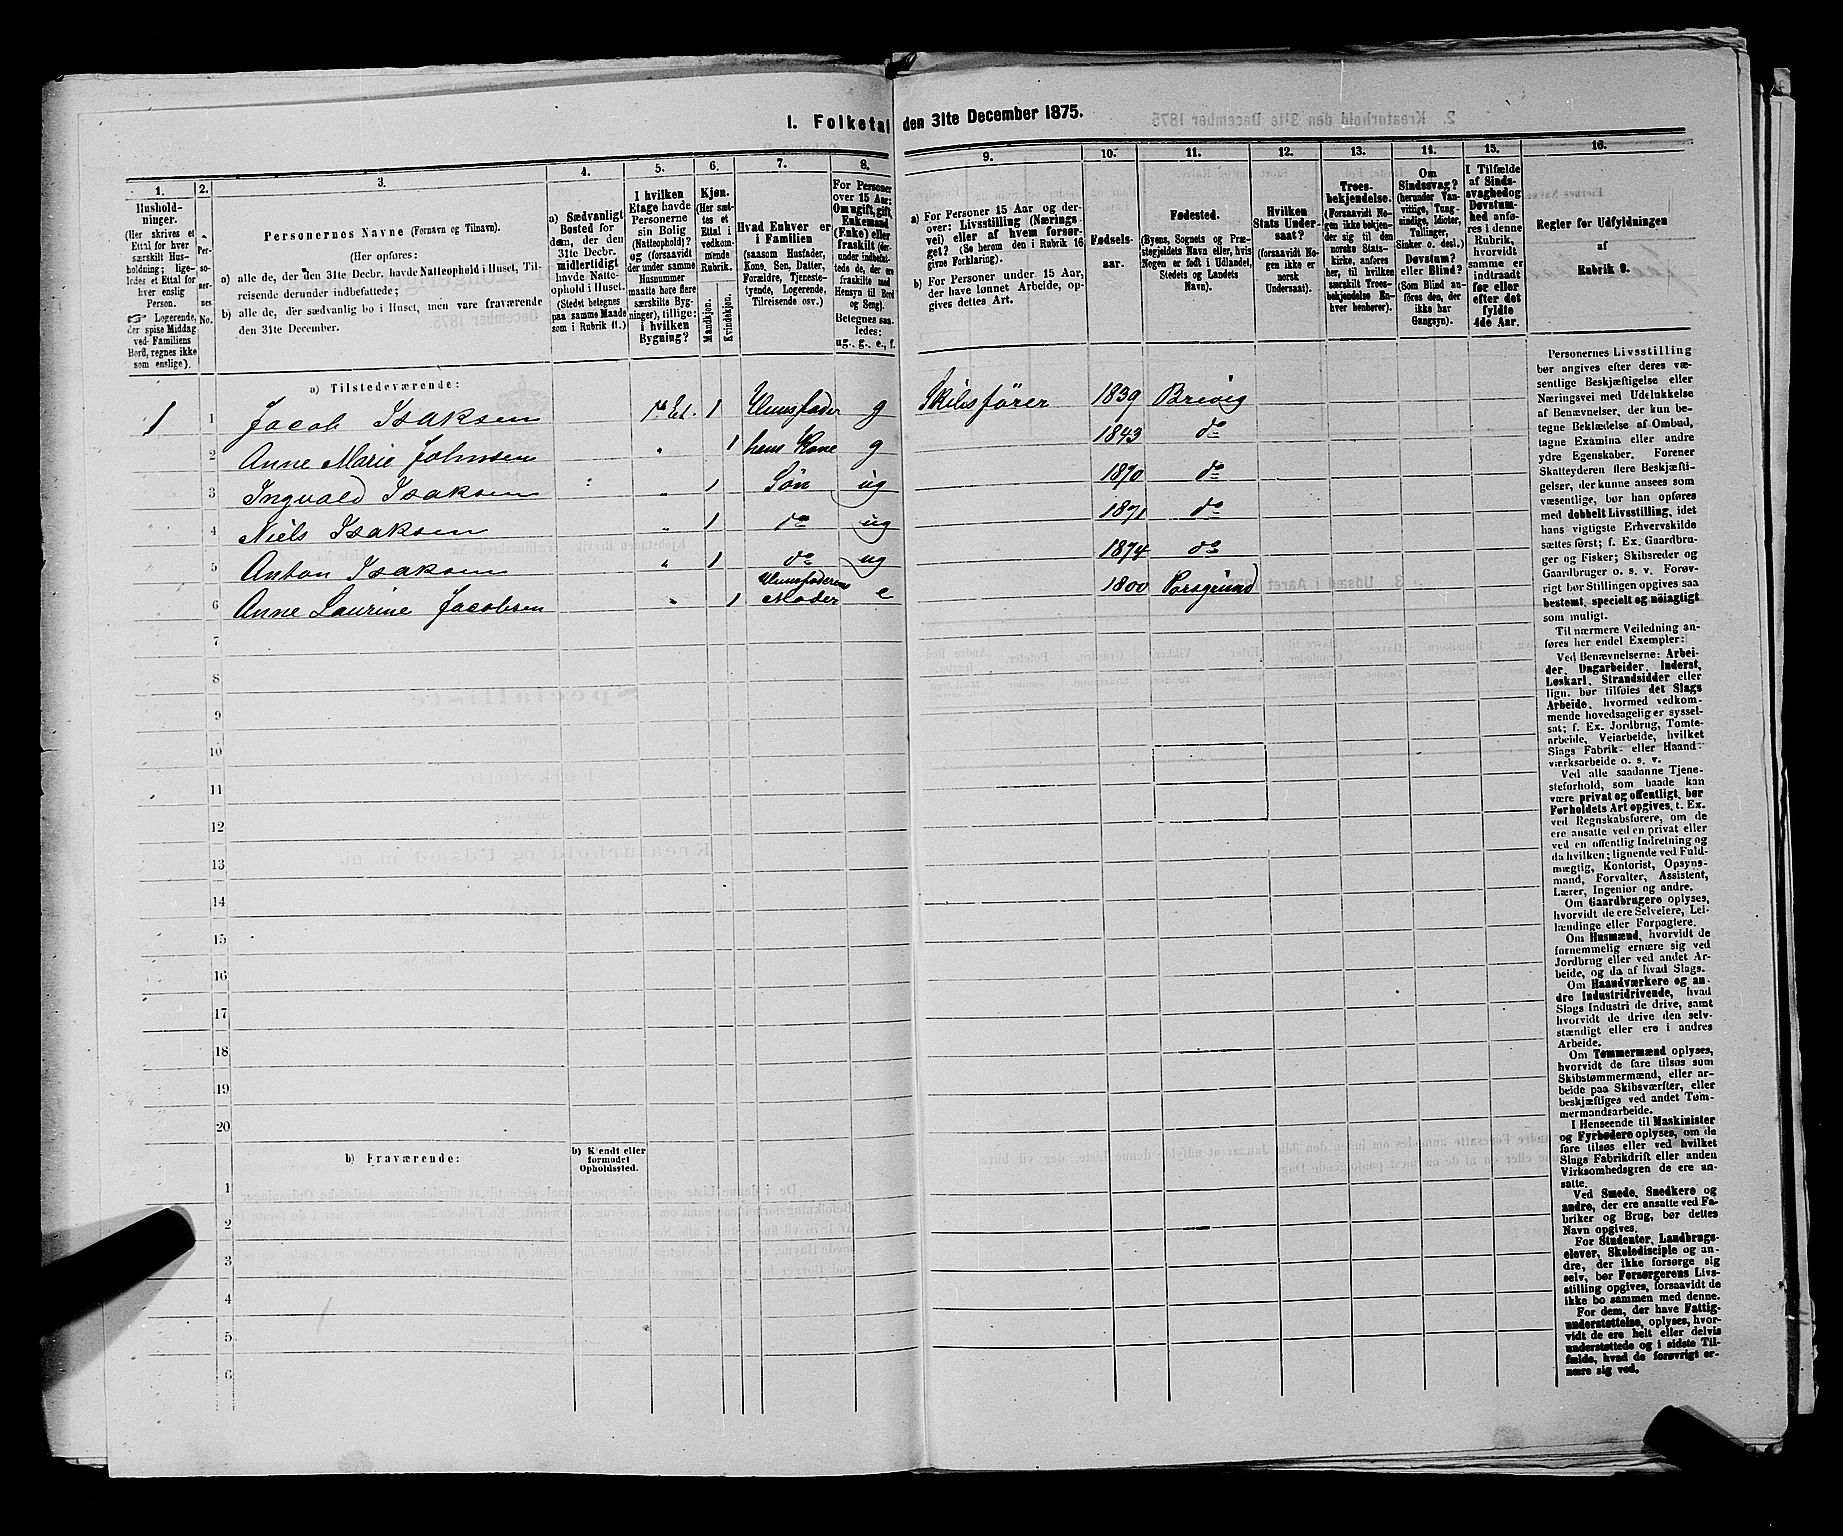 I. Folketal den 31te December 1875.
1.
Hushold-
ninger.
(Her skrives et
Ettal for hver
særskilt Hus-
holdning; lige-
ledes et Ettal for
hver enslig
Person.
☞ Logerende,
der spise Middag
ved Familiens
Bord, regnes ikke
som enslige).
2.
Per-
so-
ner-
nes
No.
3.
Personernes Navne (Fornavn og Tilnavn).
(Her opføres:
a) alle de, der den 31te Decbr. havde Natteophold i Huset, Til-
reisende derunder indbefattede;
b) alle de, der sædvanlig bo i Huset, men vare fraværende
den 31te December.
4.
a) Sædvanligt
Bosted for
dem, der den
31te Decbr.
midlertidigt
havde Natte-
ophold i Huset.
(Stedet betegnes
paa samme Maade
som i Rubrik 11.)
5.
I hvilken
Etage havde
Personerne
sin Bolig
(Natteophold)?
og (forsaavidt
der under samme
Husnummer
maatte høre flere
særskilte Byg-
ninger), tillige:
i hvilken
Bygning?
6.
Kjøn.
(Her sæt-
tes et
Ettal i
vedkom-
mende
Rubrik.
Mandkjøn.
Kvindekjøn.
7.
Hvad Enhver er
i Familien
(saasom Husfader,
Kone, Søn, Datter,
Forældre, Tjeneste-
tyende, Logerende,
Tilreisende osv.)
8.
For Personer
over 15 Aar:
Om ugift, gift,
Enkemand
(Enke) eller
fraskilt (der-
under indbefat-
tede de, der ere
fraskilte med
Hensyn til Bord
og Seng).
Betegnes saa-
ledes:
ug., g., e., f.
9.
a) For Personer 15 Aar og der-
over: Livsstilling (Nærings-
vei) eller af hvem forsør-
get? (Se herom den i Rubrik 16
givne Forklaring).
b) For Personer under 15 Aar,
der have lønnet Arbeide, op-
gives dettes Art.
10.
Fødsels-
aar.
11.
Fødested.
(Byens, Sognets og Præ-
stegjeldets Navn eller, hvis
Nogen er født i Udlandet,
Stedets og Landets
Navn).
12.
Hvilken
Stats Under-
saat?
(forsaavidt No-
gen ikke er
norsk
Undersaat).
13.
Troes-
bekjendelse.
(Forsaavidt No-
gen ikke bekjen-
der sig til den
norske Stats-
kirke, anføres
her, til hvilken
særskilt Troes-
bekjendelse En-
hver henhører).
14.
Om
Sindssvag?
(herunder Van-
vittige, Tung-
sindige, Idioter,
Tullinger,
Sinker o. desl.)
Døvstum?
eller Blind?
(Som Blind an-
føres den, der
ikke har
Gangsyn).
15.
I Tilfælde
af Sinds-
svaghed og
Døvstum-
hed anfø-
res i denne
Rubrik,
hvorvidt
samme er
indtraadt
før eller
efter det
fyldte
4de Aar.
16.
Regler for Udfyldningen
af
Rubrik 9.
a) Tilstedeværende:
1 1 Jacob Isaksen 1ste Et. 1 Huusfader g Skibsfører 1839 Brevig
2 Anne Marie Johnsen " 1 hans Kone g 1843 do
3 Ingvald Isaksen " 1 Søn ug 1870 do
4 Niels Isaksen " 1 do ug 1871 do
5 Anton Isaksen " 1 do ug 1874 do
6 Anne Laurine Jacobsen " 1 Huusfaderens Moder e 1800 Porsgrund
7
8
9
10
11
12
13
14
15
16
17
18
19
20
b) Fraværende:
b) Kjendt eller
formodet
Opholdssted.
1
2
3
4
5
6
Personernes Livsstilling
bør angives efter deres væ-
sentlige Beskjæftigelse eller
Næringsvei med Udelukkelse
af Benævnelser, der kun be-
tegne Beklædelse af Ombud,
tagne Examina eller andre
ydre Egenskaber. Forener
Skatteyderen flere Beskjæfti-
gelser, der kunne ansees som
væsentlige, bør han opføres
med dobbelt Livsstilling, idet
hans vigtigste Erhvervskilde
sættes først; f. Ex. Gaardbru-
ger og Fisker; Skibsreder og
Gaardbruger o. s. v. Forøv-
rigt bør Stillingen opgives saa
bestemt, specielt og nøiagtigt
som muligt.
Til nærmere Veiledning an-
føres her endel Exempler:
Ved Benævnelserne: Arbei-
der, Dagarbeider, Inderst,
Løskarl, Strandsidder eller
lign. bør tilføies det Slags
Arbeide, hvormed vedkom-
mende hovedsagelig er syssel-
sat; f. Ex. Jordbrug, Tomte-
arbeide, Veiarbeide, hvilket
Slags Fabrik- eller Haand-
værksarbeide o. s. v.
Ved alle saadanne Tjene-
steforhold, som baade kan
være privat og offentligt, bør
Forholdets Art opgives, t. Ex.
ved Regnskabsførere, om de
ere ansatte ved en privat eller
ved en offentlig Indretning og
da hvilken; lignende ved Fuld-
mægtig, Kontorist, Opsyns-
mand, Forvalter, Assistent,
Lærer, Ingeniør og andre.
Om Gaardbrugere oplyses,
hvorvidt de ere Selveiere, Lei-
lændinge eller Forpagtere.
Om Husmænd, hvorvidt de
fornemmelig ernære sig ved
Jordbrug eller ved andet Ar-
beide, og da af hvad Slags.
Om Haandværkere og an-
dre Industridrivende, hvad
Slags Industri de drive, samt
hvorvidt de drive den selv-
stændigt eller ere i andres
Arbeide.
Om Tømmermænd oplyses,
hvorvidt de fare tilsøs som
Skibstømmermænd, eller ar-
beide paa Skibsværfter, eller
beskjæftiges ved andet Tøm-
mermandsarbeide.
I Henseende til Maskinister
og Fyrbødere oplyses, om de
fare tilsøs eller ved hvilket
Slags Fabrikdrift eller anden
Virksomhedsgren de ere an-
satte.
Ved Smede, Snedkere og
andre, der ere ansatte ved Fa-
briker og Brug, bør dettes
Navn opgives.
For Studenter, Landbrugs-
elever, Skoledisciple og an-
dre, der ikke forsørge sig
selv, bør Forsørgerens Livs-
stilling opgives, forsaavidt de
ikke bo sammen med denne.
For dem, der have Fattig-
understøttelse, oplyses, hvor-
vidt de ere helt eller delvis
understøttede og i sidste Til-
fælde, hvad de forøvrigt er-
nære sig ved.